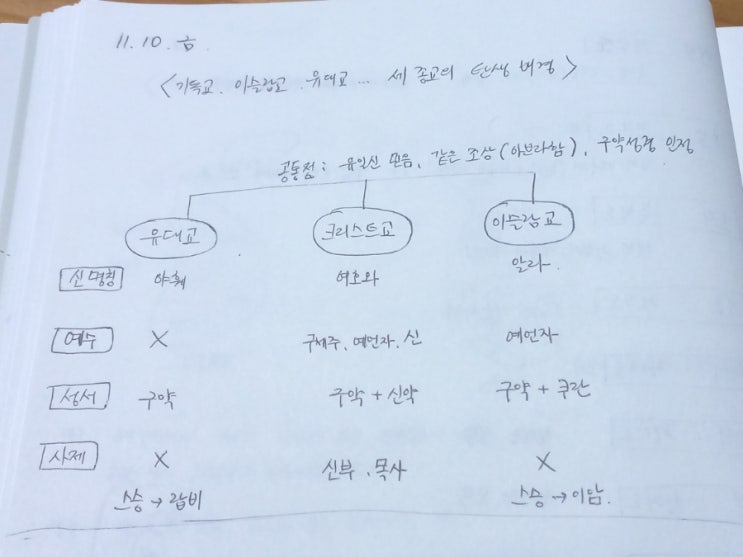 11. 10. 금.
<기독교. 이슬람교. 유대교... 세 종교의 탄생 배경>
공통점 : 유일신 믿음, 같은 조상(아브라함), 구약성경 인정
유대교 크리스트교 이슬람교
신 명칭 야훼 여호와 알라.
예수 X 구세주, 예언자, 신 예언자
성서 구약 구약 + 신약 구약 + 쿠란
사제 X 신부, 목사 X
스승 → 랍비 스승 → 이맘.